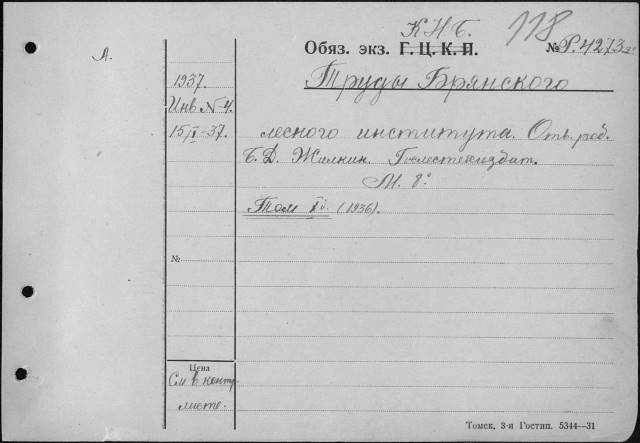 К.Н.Б. 118
А.
Обяз. экз. Г. Ц. К. П. № Р.4273
1937.
Труды Брянского
Инв № 4.
15/I-37.
лесного института. Отв. ред.
Б. Д. Жилкин. Гослестехиздат.
М. 8°
Том I й. (1936).
№
Цена
См в контр.
листе.
Томск, 3-я Гостип. 5344—31